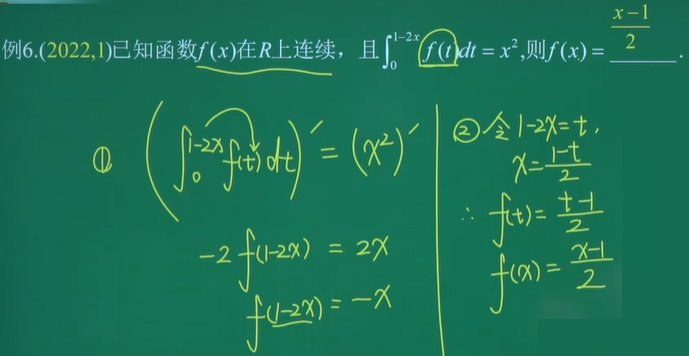 例6.(2022,1)已知函数f(x)在R上连续，且∫₀^{1-2x} f(t)dt = x²,则f(x) = \frac{x-1}{2}.
① (∫₀^{1-2x} f(t)dt)′ = (x²)′
-2f(1-2x) = 2x
f(1-2x) = -x
② 令1-2x=t,
x = \frac{1-t}{2}
∴ f(t) = \frac{t-1}{2}
f(x) = \frac{x-1}{2}